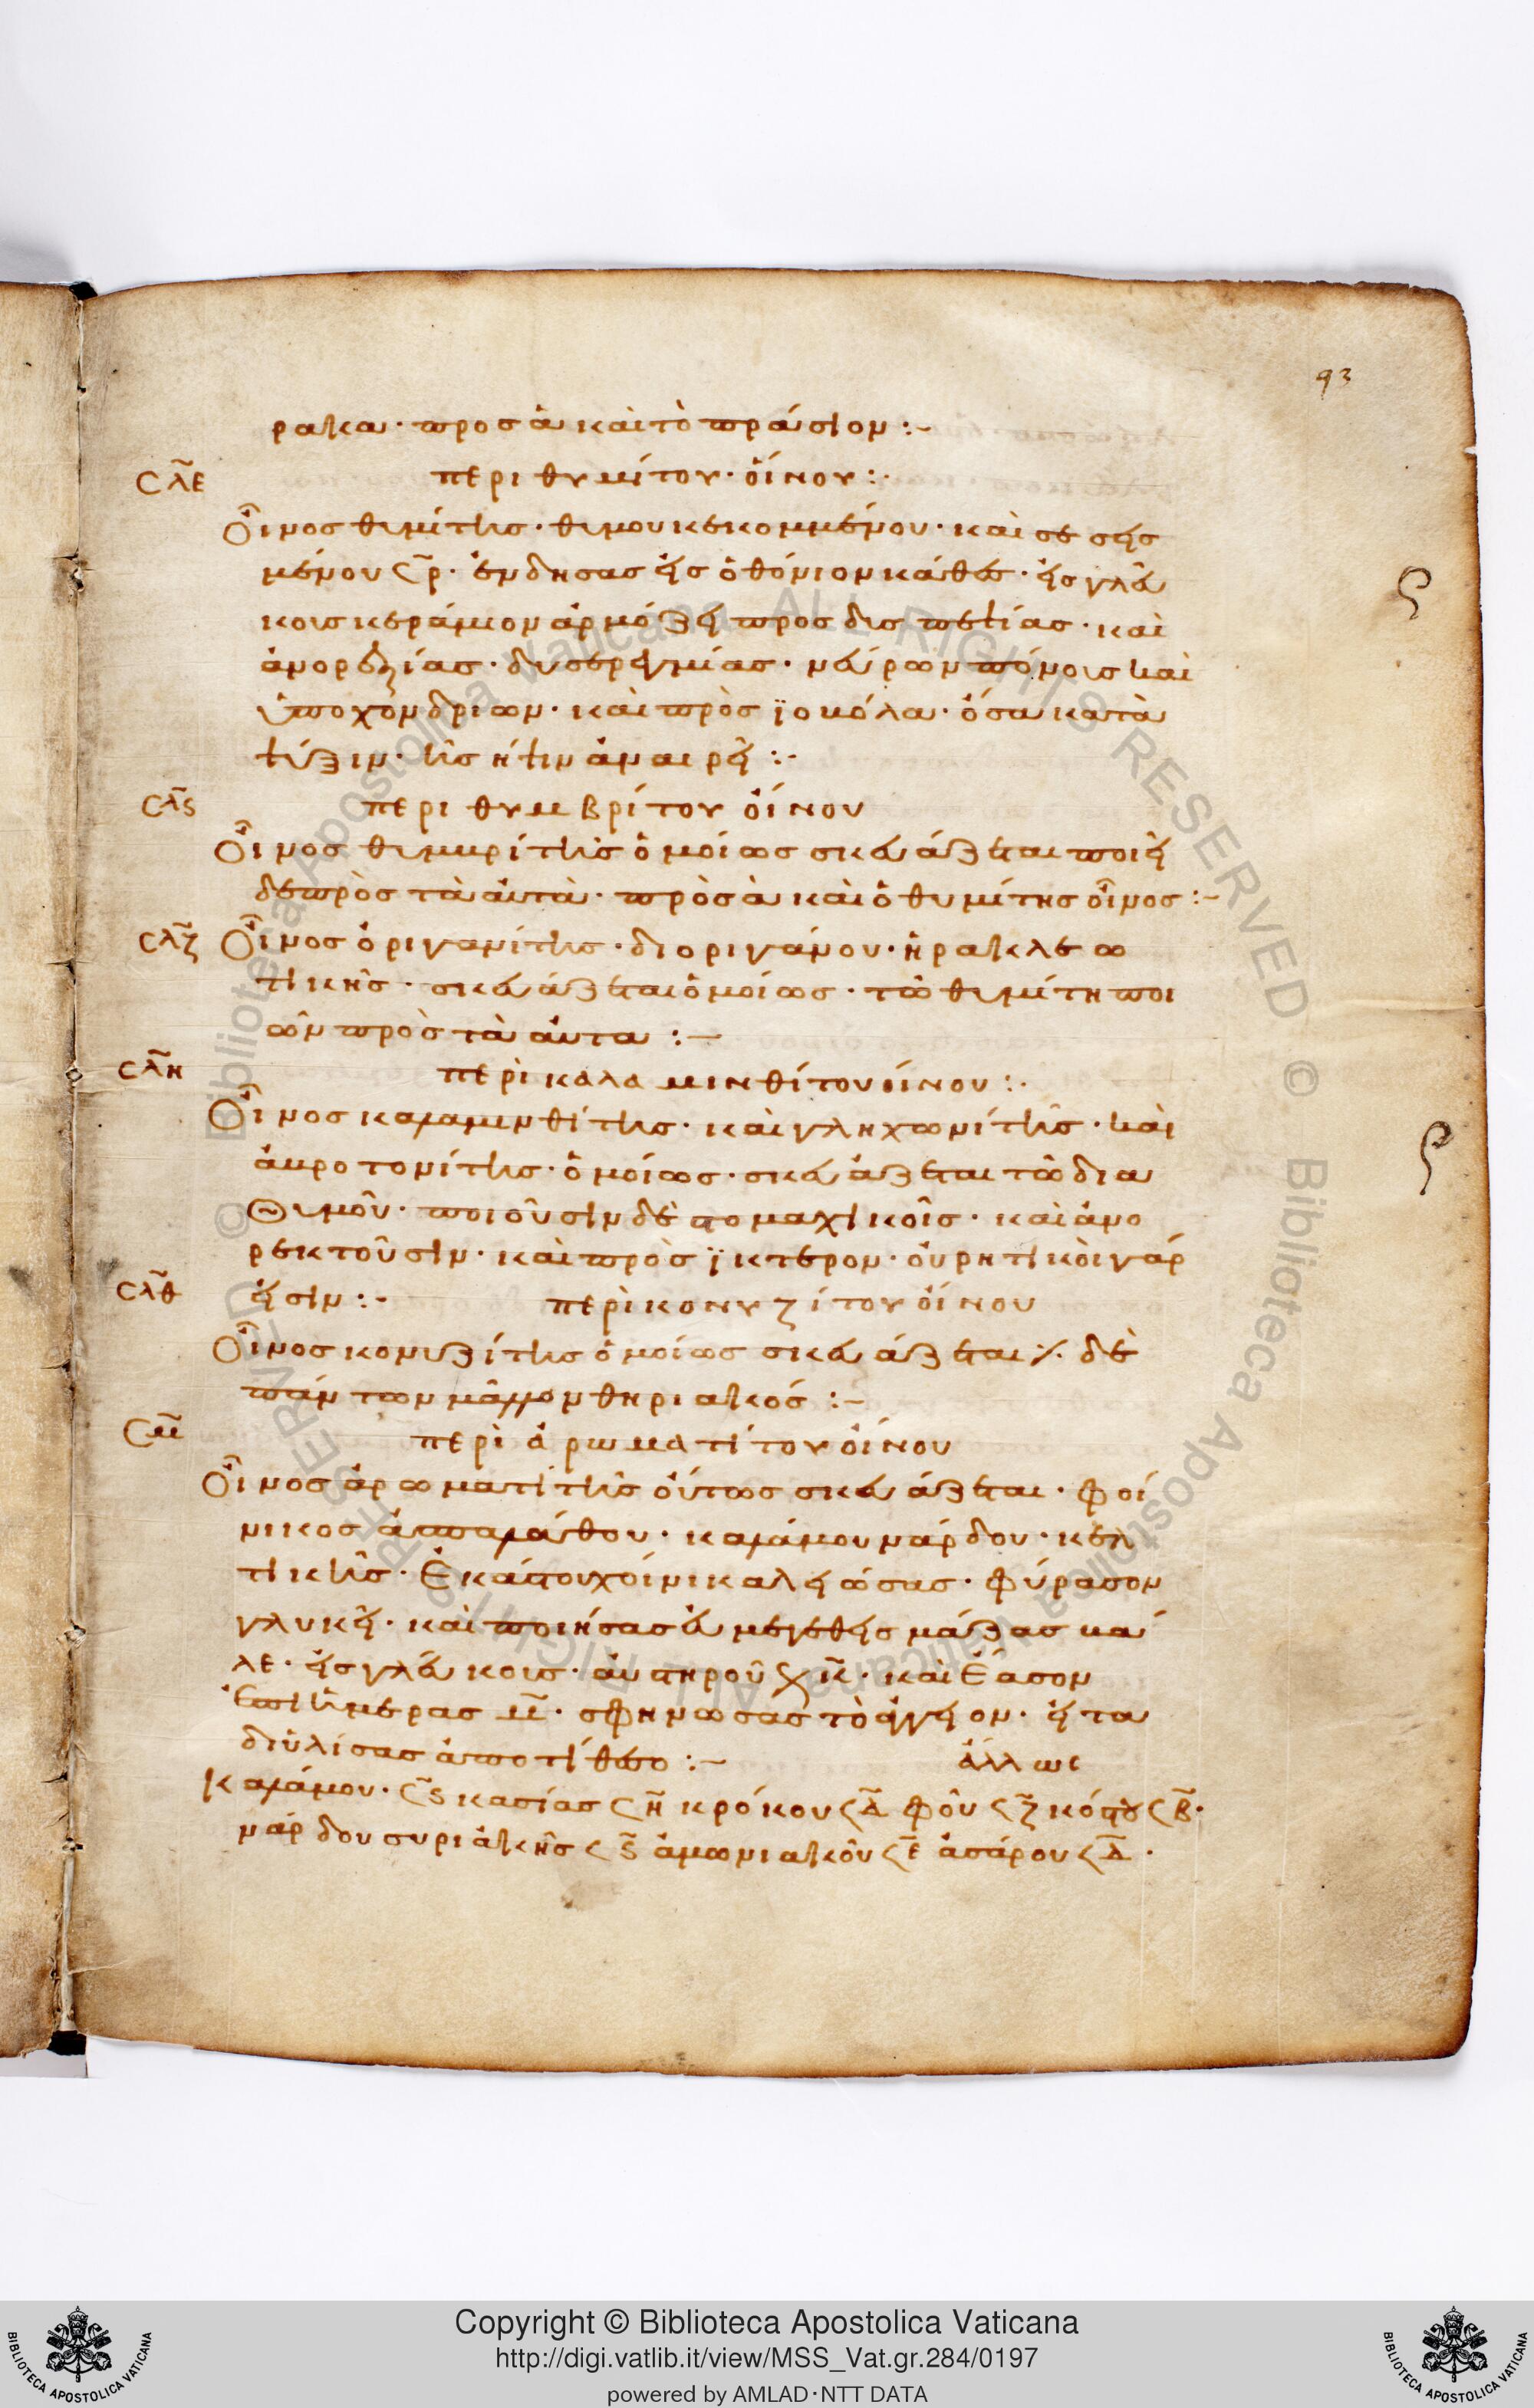 93
ρακα· προσ ἃ καὶ τὸ πράσιον :-
σλε περι θυμίτου· οἴνου :·
Οἶνοσ θυμίτησ· θυμου κεκομμένου· καὶ σεσησ
μένου 𐅻ρ· ἐνδησασ εἰσ ὀθόνιον κάθεσ· εἰσ γλεύ
κουσ κεράμιον ἁρμόζει προσ δυσπεψίασ· καὶ
ἀνορεξίασ· δυσεργείασ· νεύρων πόνουσ καὶ
ὑποχονδρίων· καὶ πρὸσ ϊοβόλα· ὅσα κατὰ
ψύξιν· τὴσ ἥτιν ἀναιρεῖ :-
σλς περι θυμβρίτου οἴνου
Οἶνοσ θυμβρίτησ ὁμοίωσ σκευάζεται ποιεῖ
δε πρὸσ τὰ αὐτὰ· πρὸσ ἃ καὶ ὁ θυμίτησ οἶνοσ :-
σλζ Οἶνοσ ὀριγανίτησ· δι ὀριγάνου· ἡρακλεω
τικῆσ· σκευάζεται ὁμοίωσ· τῶ θυμίτη ποι
ῶν πρὸσ τὰ αὐτα :-
σλη περὶ καλαμινθίτου οἴνου :·
Οἶνοσ καλαμινθίτησ· καὶ γληχωνίτησ· καὶ
ἀβροτονίτησ· ὁμοίωσ· σκευάζεται τῶ δια
Θυμοῦ· ποιοῦσιν δὲ στομαχικοῖσ· καὶ ἀνο
ρεκτοῦσιν· καὶ πρὸσ ϊκτερον· οὐρητικὸι γάρ
σλθ εἰσιν :- περὶ κονυζίτου οἴνου
Οἶνοσ κονυζίτησ ὁμοίωσ σκευάζεται ⁒ δὲ
πάντων μᾶλλον θηριακόσ :-
σμ περὶ ἀρωματίτου οἴνου
Οἶνοσ ἀρωματίτησ οὕτωσ σκευάζεται· φοί
νικοσ ἀσπαλάθου· καλάμου νάρδου· κελ
τικῆσ· Ἑκάστου χοίνικα λειώσασ· φύρασον
γλυκεῖ· καὶ ποιήσασ εὐμεγέθεισ μάζασ κά
λε· εἰσ γλεύκουσ· αὐστηροῦ χ ιβ· καὶ ἔασον
ἐπὶ ἡμέρασ μ· σφηνωσασ τὸ ἀγεῖον· εἶτα
διϋλίσασ ἀποτίθεσο :- ἄλλως
Καλάμου· 𐅻ς κασίασ 𐅻η κρόκου 𐅻δ φοῦ 𐅻ζ κόστου 𐅻β·
νάρδου συριακῆσ 𐅻ς ἀμωνιακοῦ 𐅻ε ἀσάρου 𐅻δ·
Copyright © Biblioteca Apostolica Vaticana
http://digi.vatlib.it/view/MSS_Vat.gr.284/0197
powered by AMLAD·NTT DATA
BIBLIOTECA APOSTOLICA VATICANA
BIBLIOTECA APOSTOLICA VATICANA
© Biblioteca Apostolica Vaticana ALL RIGHTS RESERVED © Biblioteca Apostolica Vaticana ALL RIGHTS RESERVED